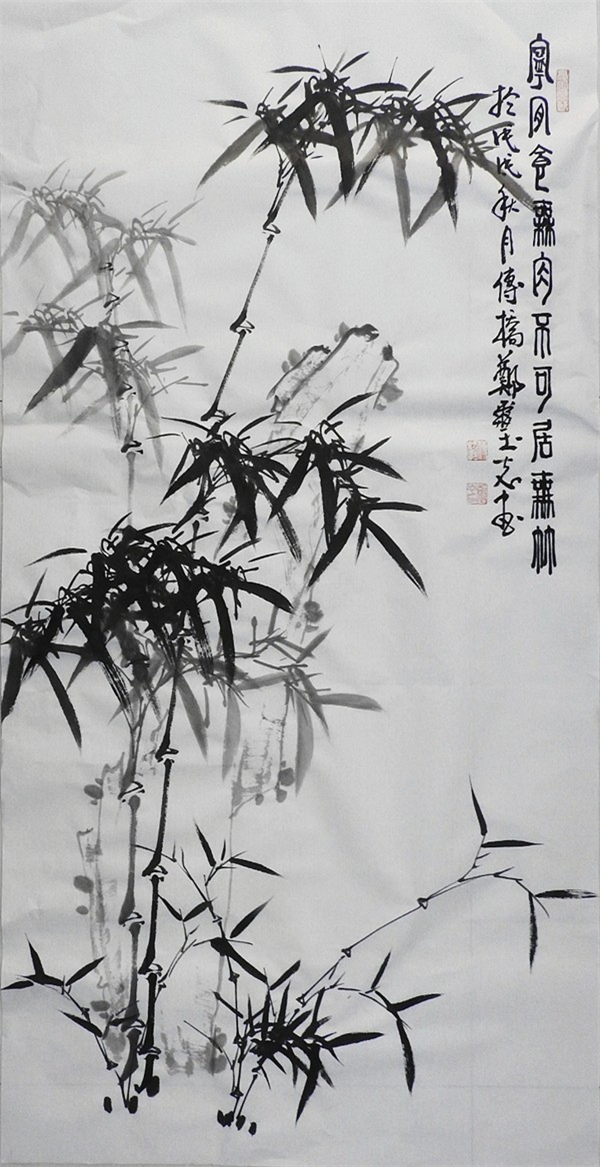 寧可食無肉不可居無竹
於戊戌秋月傅橋鄭土志